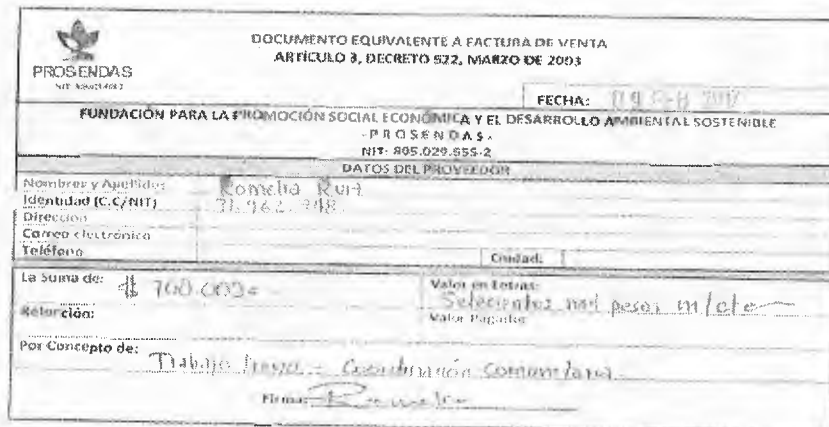 DOCUMENTO EQUIVALENTE A FACTURA DE VENTA
ARTÍCULO 3, DECRETO 522, MARZO DE 2003
PROSENDAS
FECHA:
FUNDACIÓN PARA LA PROMOCIÓN SOCIAL ECONÓMICA Y EL DESARROLLO AMBIENTAL SOSTENIBLE
-PROSENDAS-
NIT- 805.029.555-2
DATOS DEL PROVEEDOR
Nombres y Apellidos Romelia Ruiz
Identidad (C.C/NIT)
Dirección
Correo electrónico
Teléfono Ciudad:
La Suma de: $ 700.000= Valor en Letras: Setecientos mil pesos m/cte
Retención: Valor Pagado:
Por Concepto de: Trabajo Coordinación Comunitaria
Firma: Romelia